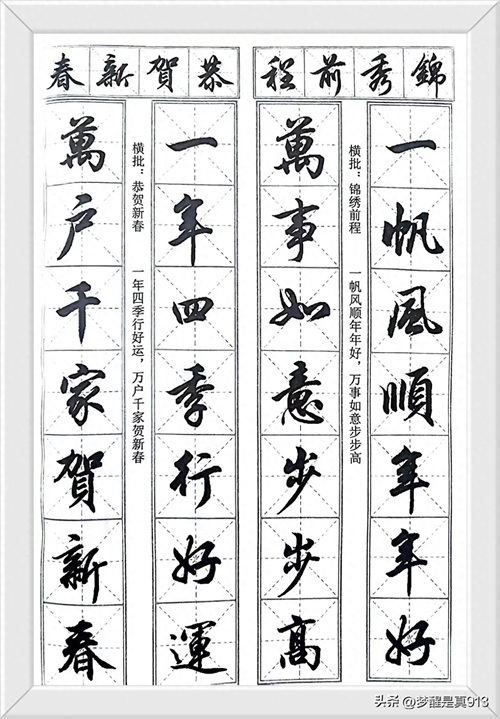 錦秀前程
一帆風順年年好
横批：锦绣前程　一帆风顺年年好，万事如意步步高
萬事如意步步高
恭賀新春
一年四季行好運
横批：恭贺新春　一年四季行好运，万户千家贺新春
萬户千家賀新春
头条 @梦醒是真913